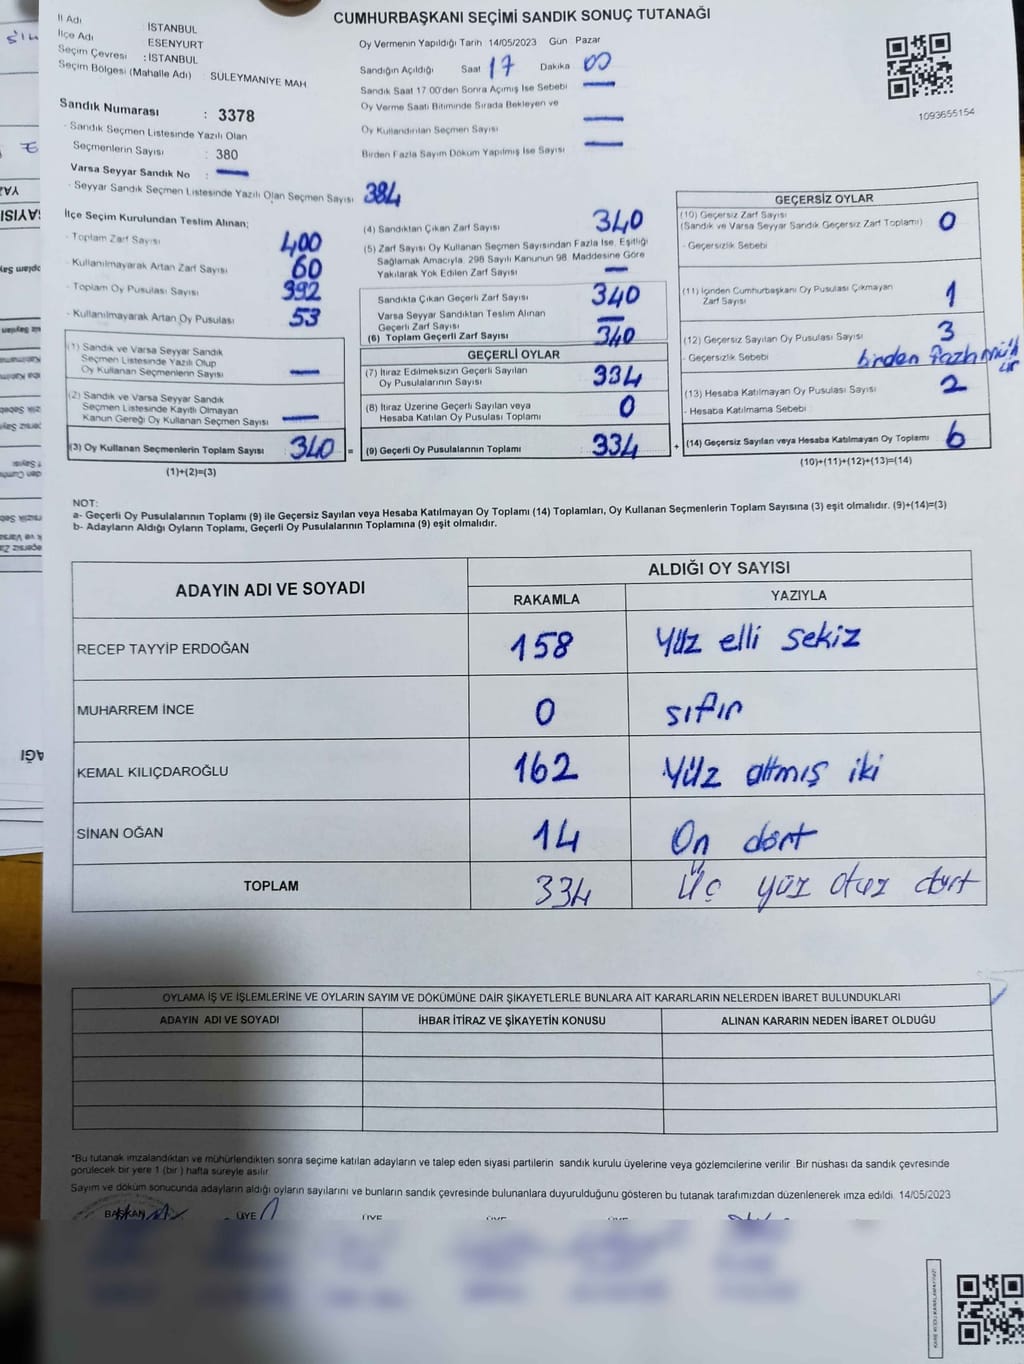 CUMHURBAŞKANI SEÇİMİ SANDIK SONUÇ TUTANAĞI
İl Adı İSTANBUL
İlçe Adı ESENYURT
Seçim Çevresi : İSTANBUL
Seçim Bölgesi (Mahalle Adı) SÜLEYMANİYE MAH
Sandık Numarası : 3378
- Sandık Seçmen Listesinde Yazılı Olan
Seçmenlerin Sayısı : 380
Varsa Seyyar Sandık No : —
- Seyyar Sandık Seçmen Listesinde Yazılı Olan Seçmen Sayısı 384
Oy Vermenin Yapıldığı Tarih 14/05/2023 Gün Pazar
Sandığın Açıldığı Saat 17 Dakika 00
Sandık Saat 17:00'den Sonra Açımış İse Sebebi —
Oy Verme Saati Bitiminde Sırada Bekleyen ve
Oy Kullandırılan Seçmen Sayısı —
Birden Fazla Sayım Döküm Yapılmış İse Sayısı —
1093655154
İlçe Seçim Kurulundan Teslim Alınan;
- Toplam Zarf Sayısı 400
- Kullanılmayarak Artan Zarf Sayısı 60
- Toplam Oy Pusulası Sayısı 392
- Kullanılmayarak Artan Oy Pusulası 53
(1) Sandık ve Varsa Seyyar Sandık
Seçmen Listesinde Yazılı Olup
Oy Kullanan Seçmenlerin Sayısı —
(2) Sandık ve Varsa Seyyar Sandık
Seçmen Listesinde Kayıtlı Olmayan
Kanun Gereği Oy Kullanan Seçmen Sayısı —
(3) Oy Kullanan Seçmenlerin Toplam Sayısı 340 =
(1)+(2)=(3)
(4) Sandıktan Çıkan Zarf Sayısı 340
(5) Zarf Sayısı Oy Kullanan Seçmen Sayısından Fazla İse, Eşitliği
Sağlamak Amacıyla, 298 Sayılı Kanunun 98. Maddesine Göre
Yakılarak Yok Edilen Zarf Sayısı —
Sandıkta Çıkan Geçerli Zarf Sayısı 340
Varsa Seyyar Sandıktan Teslim Alınan
Geçerli Zarf Sayısı —
(6) Toplam Geçerli Zarf Sayısı 340
GEÇERLİ OYLAR
(7) İtiraz Edilmeksizin Geçerli Sayılan
Oy Pusulalarının Sayısı 334
(8) İtiraz Üzerine Geçerli Sayılan veya
Hesaba Katılan Oy Pusulası Toplamı 0
(9) Geçerli Oy Pusulalarının Toplamı 334 +
GEÇERSİZ OYLAR
(10) Geçersiz Zarf Sayısı
(Sandık ve Varsa Seyyar Sandık Geçersiz Zarf Toplamı) 0
- Geçersizlik Sebebi
(11) İçinden Cumhurbaşkanı Oy Pusulası Çıkmayan
Zarf Sayısı 1
(12) Geçersiz Sayılan Oy Pusulası Sayısı 3
- Geçersizlik Sebebi birden fazla
(13) Hesaba Katılmayan Oy Pusulası Sayısı 2
- Hesaba Katılmama Sebebi
(14) Geçersiz Sayılan veya Hesaba Katılmayan Oy Toplamı 6
(10)+(11)+(12)+(13)=(14)
NOT:
a- Geçerli Oy Pusulalarının Toplamı (9) ile Geçersiz Sayılan veya Hesaba Katılmayan Oy Toplamı (14) Toplamları, Oy Kullanan Seçmenlerin Toplam Sayısına (3) eşit olmalıdır. (9)+(14)=(3)
b- Adayların Aldığı Oyların Toplamı, Geçerli Oy Pusulalarının Toplamına (9) eşit olmalıdır.
ADAYIN ADI VE SOYADI ALDIĞI OY SAYISI
RAKAMLA YAZIYLA
RECEP TAYYİP ERDOĞAN 158 Yüz elli sekiz
MUHARREM İNCE 0 sıfır
KEMAL KILIÇDAROĞLU 162 Yüz altmış iki
SİNAN OĞAN 14 On dört
TOPLAM 334 Üç yüz otuz dört
OYLAMA İŞ VE İŞLEMLERİNE VE OYLARIN SAYIM VE DÖKÜMÜNE DAİR ŞİKAYETLERLE BUNLARA AİT KARARLARIN NELERDEN İBARET BULUNDUKLARI
ADAYIN ADI VE SOYADI İHBAR İTİRAZ VE ŞİKAYETİN KONUSU ALINAN KARARIN NEDEN İBARET OLDUĞU
*Bu tutanak imzalandıktan ve mühürlendikten sonra seçime katılan adayların ve talep eden siyasi partilerin sandık kurulu üyelerine veya gözlemcilerine verilir. Bir nüshası da sandık çevresinde
görülecek bir yere 1 (bir) hafta süreyle asılır.
Sayım ve döküm sonucunda adayların aldığı oyların sayılarını ve bunların sandık çevresinde bulunanlara duyurulduğunu gösteren bu tutanak tarafımızdan düzenlenerek imza edildi. 14/05/2023
BAŞKAN ÜYE ÜYE ÜYE ÜYE